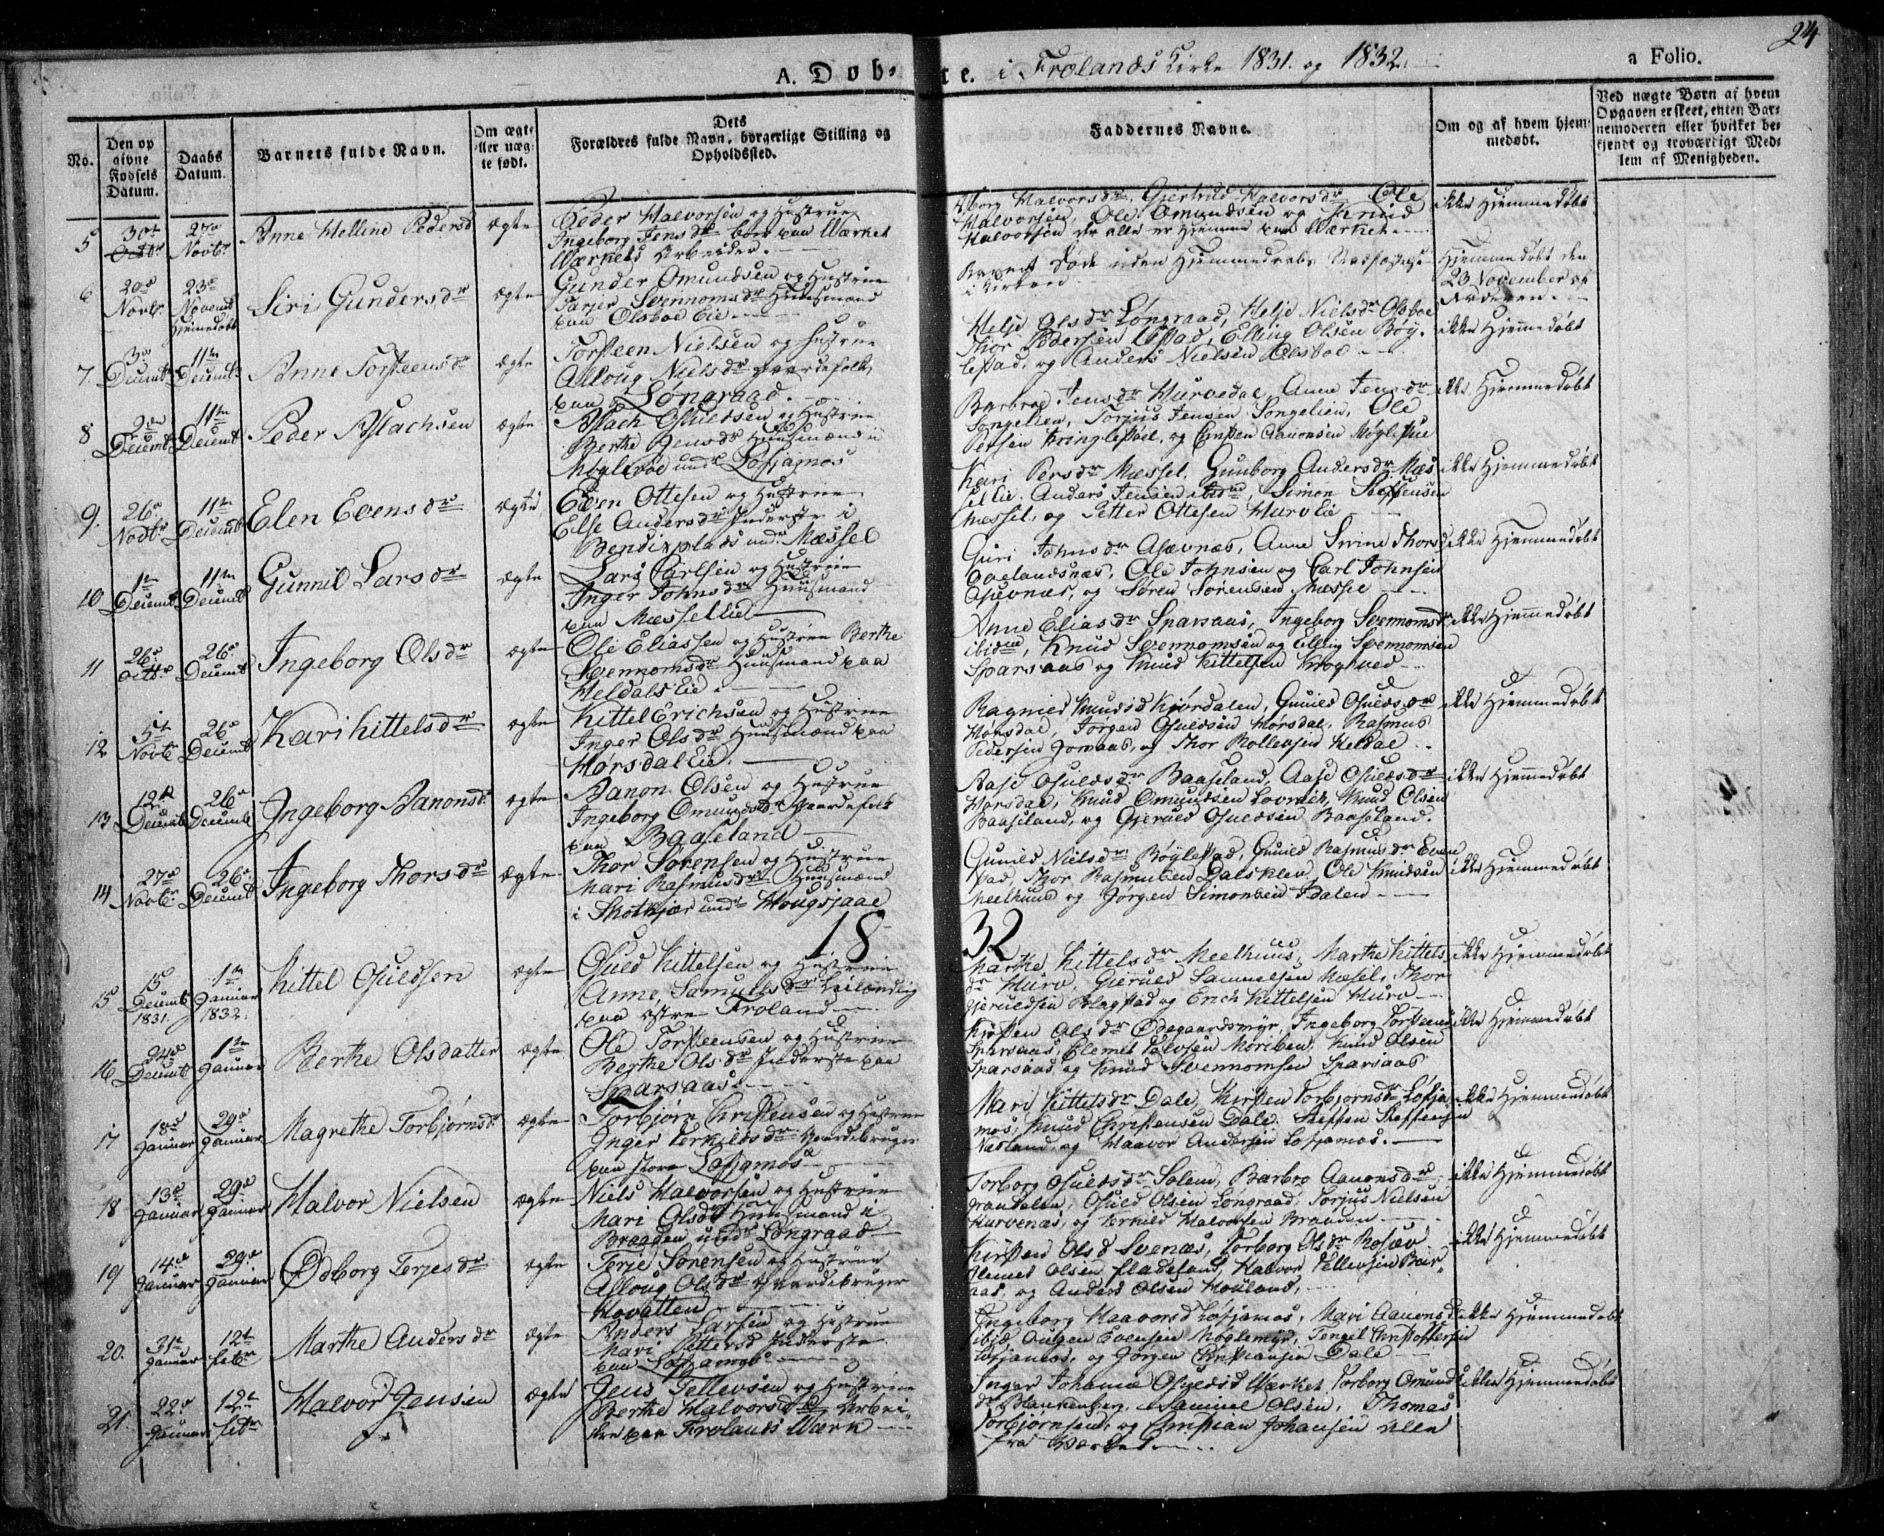 24
A. Døb- te. i Frolands Kirke 1831. og 1832.
a Folio.
No.
Den op
givne
Fødsels
Datum.
Daabs
Datum.
Barnets fulde Navn.
Om ægte
eller uæg-
te født.
Dets
Forældres fulde Navn, borgerlige Stilling og
Opholdssted.
Faddernes Navne.
Om og af hvem hjem-
medøbt.
Ved uægte Børn af hvem
Opgaven er skeet, enten Bar-
nemoderen eller hvilket be-
kjendt og troværdigt Med-
lem af Menigheden.
5
30te Octbr
27de Novbr
Anne Helline Pedersd
ægte
Peder Halvorsen og Hustrue
Ingeborg Jensdr boer paa Værket
Værkets Arbeider.
Halvorsdr, Gjertrud Halvorsdr Ole
Halvorsen, Ole Omundsen og Knud
Halvorsen der alle er hjemme paa Værket.
ikke Hjemmedøbt
6
20de Novbr
23de Novemb Hjemmedøbt
Siri Gundersdr
ægte
Gunder Omundsen og Hustrue
Tarjer Svennomsdr Huusmand
paa Olsboe Eie
Barnet døde uden Hjemmedaabs Stadfæstelse
i Kirken
Hjemmedøbt den
23 November af
Faderen.
7.
3de Decemb
11te Decemb
Anne Torsteensdr
ægte
Torsteen Nielsen og Hustrue
Asloug Nielsdr gaardefolk
paa Løngraad.
Helje Olsdr Løngraad, Helje Nielsdr Olsboe
Thor Pedersen Løstad, Elling Olsen Bøy-
lestad, og Anders Nielsen Olsboe
ikke Hjemmedøbt
8
2den Decemb
11te Decemb
Peder Aslachsen
ægte
Aslach Osuldsen og Hustrue
Berthe Jensdr Huusmænd i
Møglestøe under Løfjamos
Barbroe Jensdr Hurvedal, Anne Jensdr
Songelien, Torjus Jensen Songelien, Ole
Persen Kringlestøel, og Cristen Aanonsen Møglestue
ikke Hjemmedøbt
9.
26de Novbr
11te Decemb
Elen Evensdr
ægte
Even Ottesen og Hustrue
Else Andersdr Inderste i
Bendixplads under Mæssel
Kari Persdr Mæssel, Gunborg Andersdr Mæs
sel Eie, Anders Jensen ibid, Simon Steffensen
Mæssel, og Petter Ottesen Hurvlie
ikke Hjemmedøbt
10
1te Decemb
11te Decemb
Gunnil Larsdr
ægte
Lars Carlsen og Hustrue
Inger Johnsdr Huusmand
paa Mæssel Eie
Guri Johnsdr Osevnæs, Anne Serine Thorsd
Ole Johnsen og Carl Johnsen
Osevnæs, og Søren Sørensen Mæssel
ikke Hjemmedøbt
11
26de Octbr
26de Decemb
Ingeborg Olsdr
ægte
Ole Eliassen og Hustrue Berthe
Svennomsdr Huusmand paa
Heldals Eie.
Anne Eliasdr Sparsaas, Ingeborg Svennomsdr
ibidm, Knud Svennomsen og Elling Svennomsen
Sparsaas og Knud Kittelsen Kroghved
ikke Hjemmedøbt
12
5te Novbr
26de Decemb
Kari Kittelsdr
ægte
Kittel Erichsen og Hustrue
Inger Olsdr Huusmænd paa
Horsdal Eie.
Ragnild Knudsd Kjørdalen, Gunild Osuldsdr
Horsdal, Jørgen Osuldsen Horsdal, Rasmus
Pedersen Jomaas, og Thor Rollevsen Heldal
ikke Hjemmedøbt
13
12te Decemb
26de Decemb
Ingeborg Aanonsdr
ægte
Aanon Olsen og Hustrue
Ingeborg Omundsdr Gaardefolk
paa Baaseland
Aase Osuldsdr Baaseland, Aase Osuldsdr
Horsdal, Knud Omundsen Lovnæs, Knud Olsen
Baaseland, og Gjeruld Osuldsen Baaseland.
ikke Hjemmedøbt
14
27de Novbr
26de Decemb
Ingeborg Thorsdr
ægte
Thor Sørensen og Hustrue
Mari Rasmusdr Huusmænd
i Skotkjær under Hougsjaae
Gunild Nielsdr Bøylestad, Gunild Rasmusdr Even
stad, Thor Rasmussen Dalsklev, Ole Knudsen
Meelhuus og Jørgen Simonsen Tdalen
ikke Hjemmedøbt
18 32
15
15 Decemb 1831.
1te Januar 1832.
Kittel Osuldsen
ægte
Osuld Kittelsen og Hustrue
Anne Samuelsdr Leilænding
paa østre Froland
Marthe Kittelsdr Meelhuus, Marthe Kittels
dr Hurv, Gjeruld Samuelsen Mæsel, Thor
Gjeruldsen Blagstad og Erich Kittelsen Hurv
ikke Hjemmedøbt
16
24de Decemb
1te Januar
Berthe Olsdatter
ægte
Ole Torsteensen og Hustrue
Berthe Olsdr Inderste paa
Sparsaas
Kirsten Olsdr Ødegaardsmyr, Ingeborg Torsteens
Sparsaas, Clemet Knud Olsen
Sparsaas og Knud Svennomsen Sparsaas
ikke Hjemmedøbt
17
18de Januar
29de Januar
Magrethe Torbjørnsdr
ægte
Torbjørn Christensen og Hustrue
Inger Terkildsdr Gaardebruger
paa store Løfjamos
Mari Kittelsdr Dale, Kirsten Torbjørnsdr Løfja
mos, Knud Christensen Dale, Steffen Steffensen
Næsland, og Haavor Andersen Løfjamos.
ikke Hjemmedøbt
18
13de Januar
29de Januar
Halvor Nielsen
ægte
Niels Halvorsen og Hustrue
Mari Olsdr Huusmand i
Braaden under Longraad
Torborg Osuldsdr Solem, Barbro Aanonsdr
Osuld Olsen Longraad, Torjus Nielsen
Hurvenæs, og Terkild Halvorsen Braaden
ikke Hjemmedøbt
19
14de Januar
29de Januar
Ødborg Terjesdr
ægte
Terje Sørensen og Hustrue
Asloug Olsdr Gaardebruger
Hovatten
Kirsten Olsd Svenæs, Torborg Olsdr Rosæv
Clemet Olsen Fladeland, Halvor Tellevsen Bør-
aas, og Anders Olsen Houland,
ikke Hjemmedøbt
20.
31te Januar
12te Febr
Marthe Andersdr
ægte
Anders Larsen og Hustrue
Mari Pettersd Inderste
paa Løfjamos
Ingeborg Haavorsd Løfjamos, Mari Aanonsd
ibid, Ougen Evensen Møglemyr, Tengel Christoffersen
Løfjamos, og Jørgen Christiansen Dale
ikke Hjemmedøbt
21.
22de Januar
12te Febr
Halvor Jensen
ægte
Jens Tellevsen og Hustrue
Berthe Halvorsdr Arbei-
der paa Frolands Værk
Inger Johanne Osuldsd Værket, Torborg Omunds
dr Blankenberg, Samuel Olsen, Thomas
Torbjørnsen, og Christian Johansen alle
fra Værket
ikke Hjemmedøbt